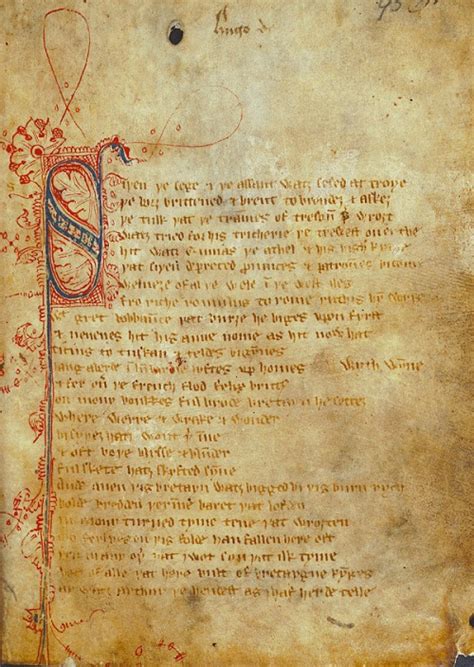 Hugo de
Siþen þe sege & þe assaut watz sesed at troye
þe borȝ brittened & brent to brondeȝ & askez
þe tulk þat þe trammes of tresoun þ wroȝt
watz tried for his tricherie þe trewest on erthe
hit watz Ennias þe athel & his highe kynde
þat siþen depreced prouinces & patrounes bicome
welneȝe of al þe wele in þe west iles
fro riche romulus to rome ricchis hym swyþe
wt gret bobbaunce þat burȝe he biges vpon fyrst
& neuenes hit his aune nome as hit now hat
ticius to tuskan & teldes bigynnes
langaberde in lumbardie lyftes vp homes wyth wynne
& fer ou þe french flod felix brutus
on mony bonkkes ful brode bretayn he settez
where werre & wrake & wonder
bi syþez hatz wont þ inne
& oft boþe blysse & blunder
ful skete hatz skyfted synne
Ande quen þis bretayn watz bigged bi þis burn rych
bolde bredden þ inne baret þat lofden
in mony turned tyme tene þat wroȝten
mo ferlyes on þis folde han fallen here oft
þen in any oþ þat I wot syn þat ilk tyme
bot of alle þat here bult of bretaygne kynges
ay watz arthur þe hendest as I haf herde telle